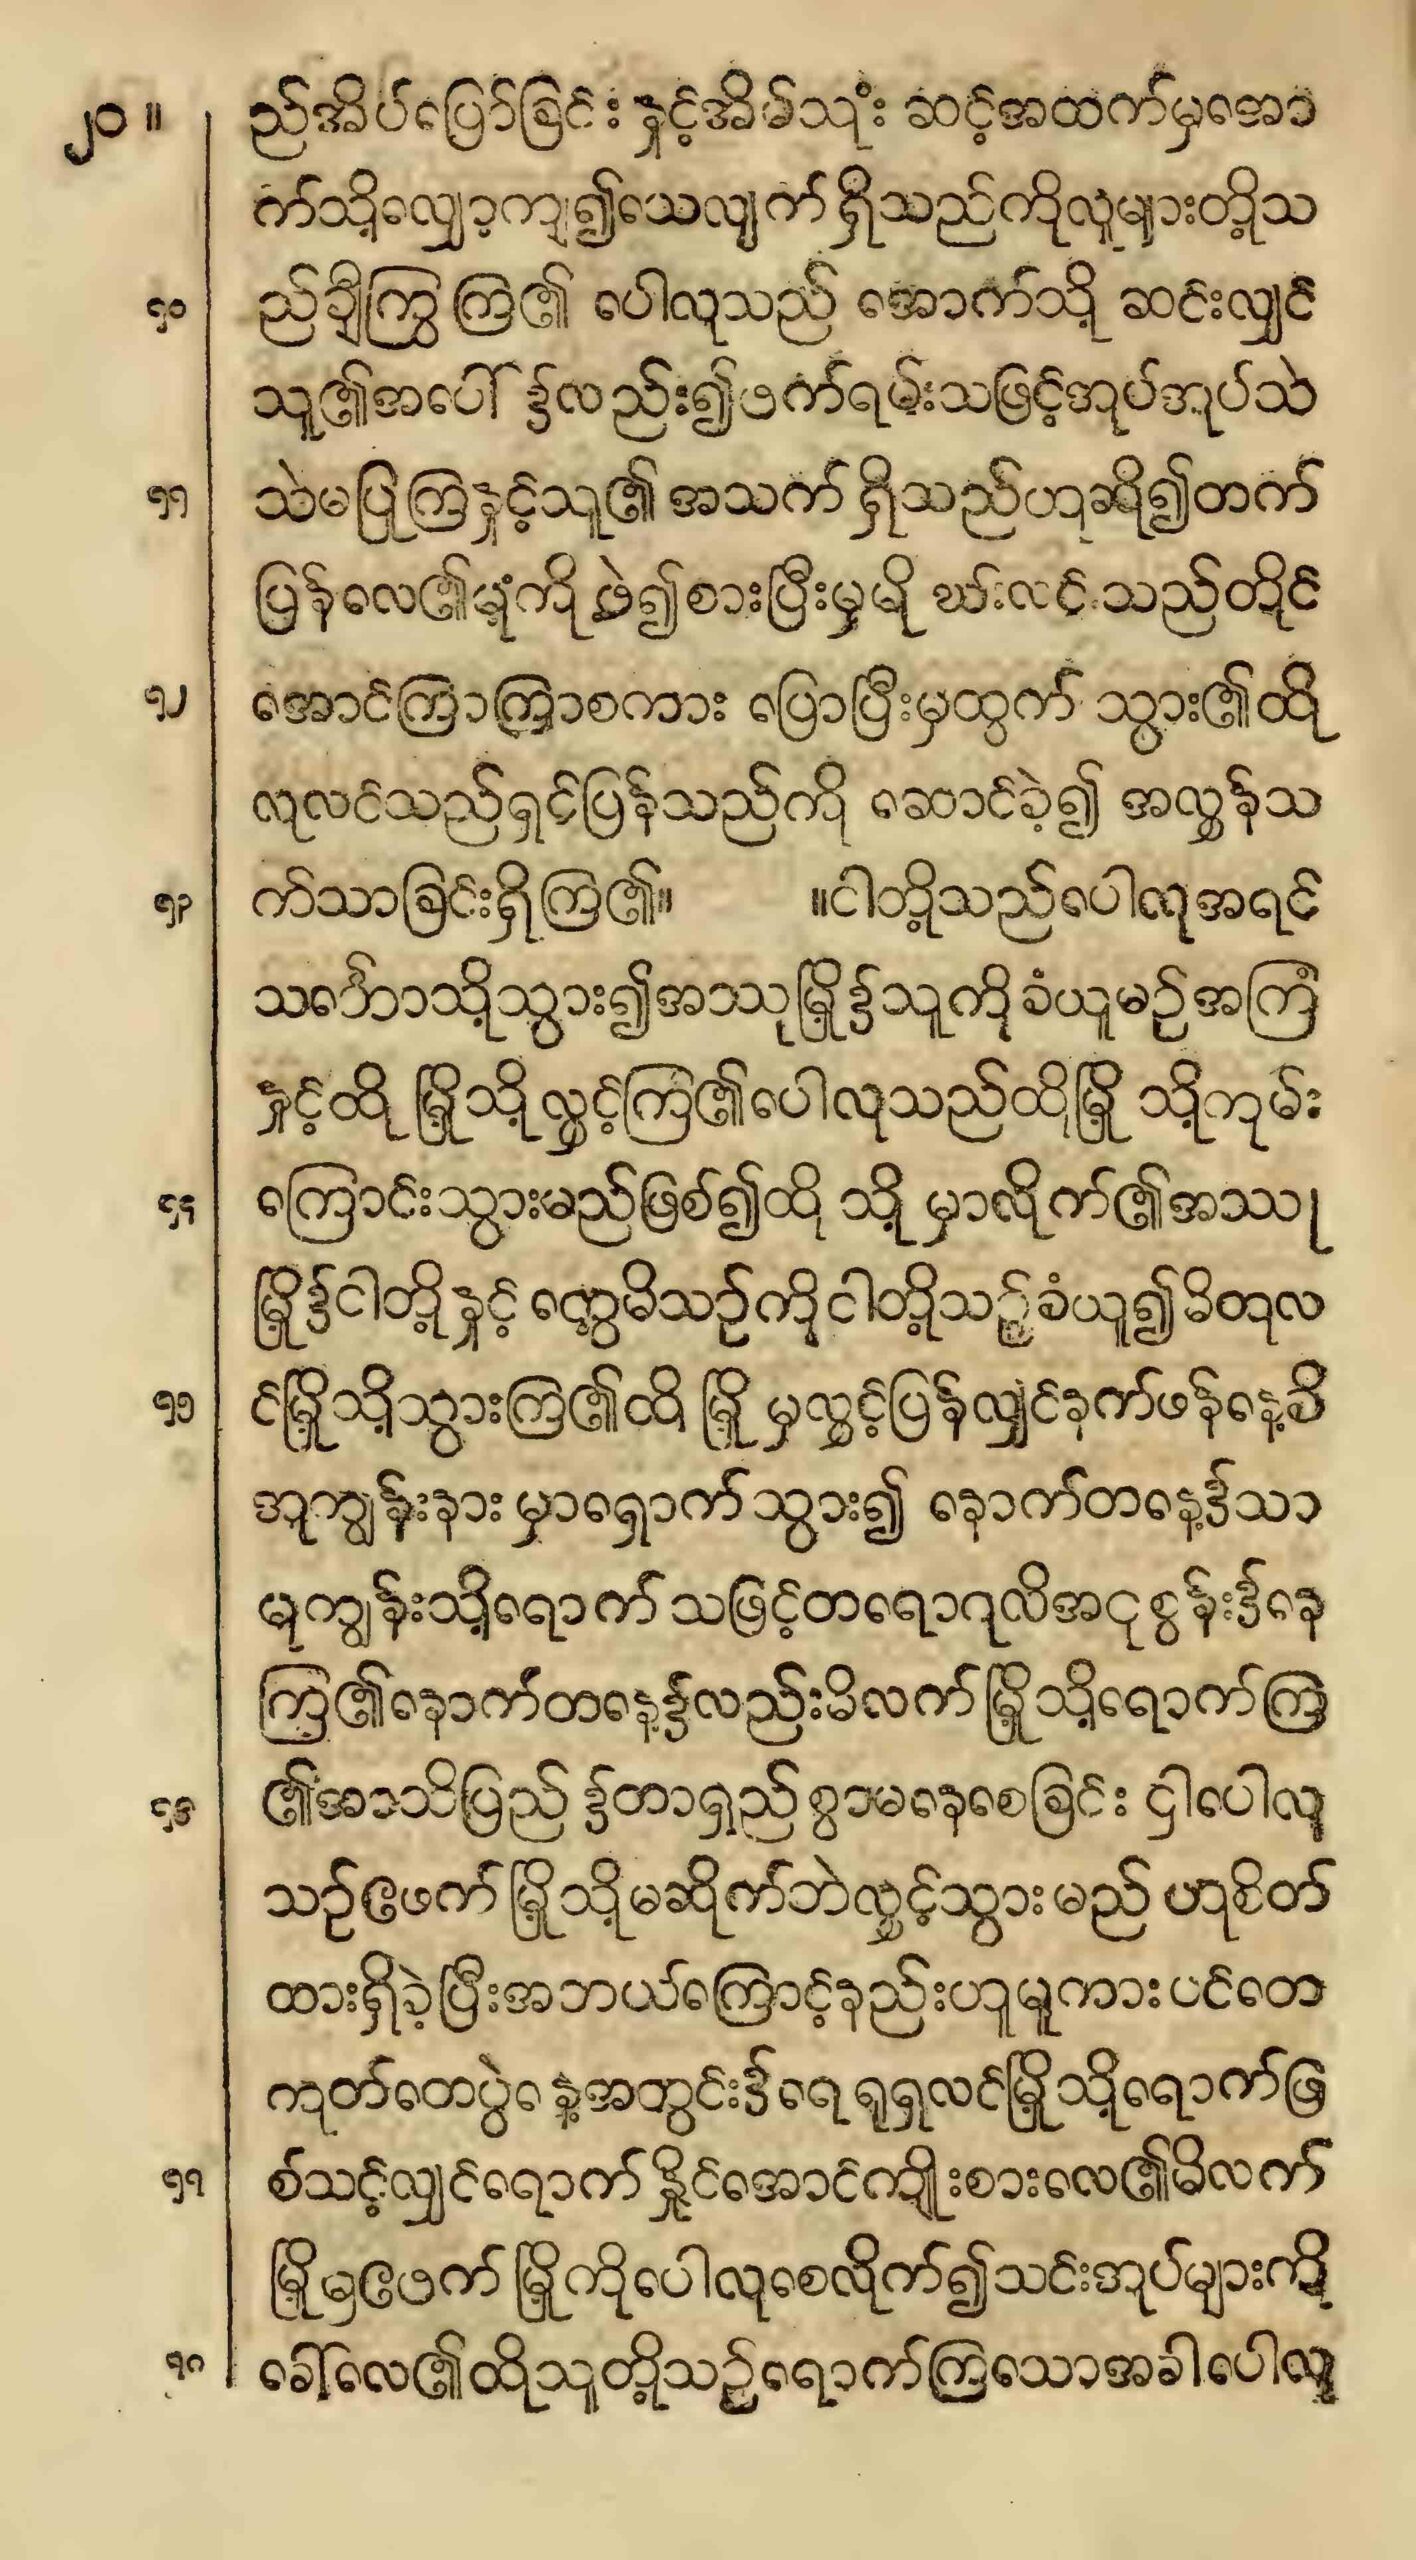 ၂၀ ။ ည်အိပ်ပြော်ခြင်းနှင့်အိမ်သုံး ဆင့်အထက်မှအော
က်သို့လျှော့ကျ၍သေလျက် ရှိသည်ကိုလူများတို့သ
၅၀ ည်ချီကြွ ကြ၏ ပေါလုသည် အောက်သို့ ဆင်းလျှင်
သူ၏အပေါ် ၌လည်း၍ဖက်ရမ်းသဖြင့်အုပ်အုပ်သဲ
၅၅ သဲမပြုကြနှင့်သူ၏ အသက် ရှိသည်ဟုဆို၍တက်
ပြန်လေ၏မုံ့ကို ဖဲ့၍စားပြီးမှမို သည်တိုင်
၅၂ အောင်ကြာကြာစကား ပြောပြီးမှထွက် သွား၏ထို
လုလင်သည်ရှင်ပြန်သည်ကို ဆောင်ခဲ့၍ အလွန်သ
၅၃ က်သာခြင်းရှိကြ၏။ ။ငါတို့သည်ပေါလုအရင်
သင်္ဘောသို့သွား၍အဿုမြို့၌သူကိုခံယူမဉ်အကြံ
နှင့်ထို မြို့သို့လွှင့်ကြ၏ပေါလုသည်ထိုမြို့ သို့ကုမ်း
၅၄ ကြောင်းသွားမည်ဖြစ်၍ထို သို့ မှာလိုက်၏အဿု
မြို့၌ငါတို့နှင့် တွေ့မိသဉ်ကိုငါတို့သဉ်ခံယူ၍မိတုလ
၅၅ င်မြို့သို့သွားကြ၏ထို မြို့ မှလွှင့်ပြန်လျှင်နက်ဖန်နေ့ခိ
အုကျွန်းနား မှာရောက်သွား၍ နောက်တနေ့၌သာ
မုကျွန်းသို့ရောက် သဖြင့်တရောဂုလိအငုစွန်း၌နေ
ကြ၏နောက်တနေ့၌လည်းမိလက် မြို့သို့ရောက်ကြ
၅၆ ၏အာသိပြည် ၌တာရှည် စွာမနေစေခြင်း ငှါပေါလု
သဉ်ဧဖက် မြို့သို့မဆိုက်ဘဲလွှင့်သွားမည် ဟုစိတ်
ထားရှိခဲ့ပြီးအဘယ်ကြောင့်နည်းဟူမူကား ပင်တေ
ကုတ်တေပွဲနေ့အတွင်း၌ ရေရုရှလင်မြို့သို့ရောက်ဖြ
၅၇ စ်သင့်လျှင်ရောက် နိုင်အောင်ကျိုးစားလေ၏မိလက်
မြို့မှဧဖက် မြို့ကိုပေါလုစေလိုက်၍သင်းအုပ်များကို
၅၈ ခေါ်လေ၏ထိုသူတို့သဉ်ရောက်ကြသောအခါပေါလု